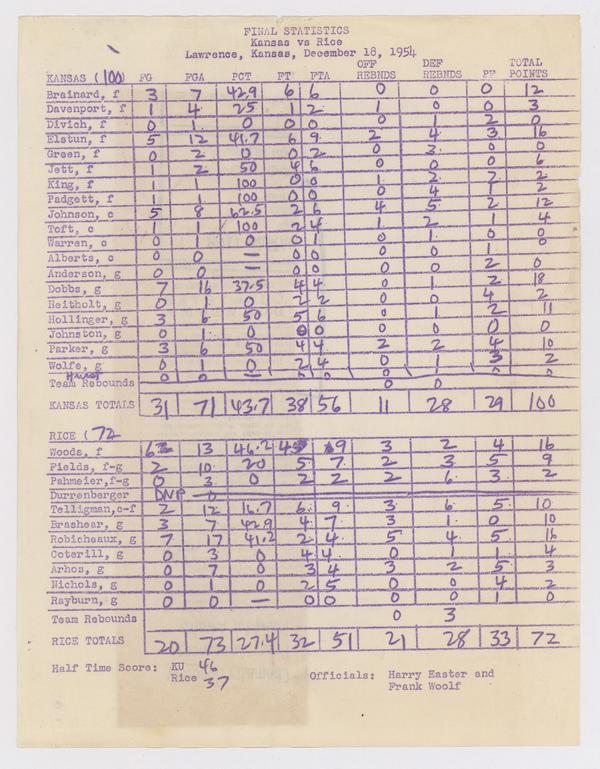 FINAL STATISTICS
Kansas vs Rice
Lawrence, Kansas, December 18, 1954
OFF DEF TOTAL
KANSAS (100) FG FGA PCT FT FTA REBNDS REBNDS PF POINTS
Brainard, f 3 7 42.9 6 6 0 0 0 12
Davenport, f 1 4 25 1 2 1 0 0 3
Divich, f 0 1 0 0 0 0 1 2 0
Elstun, f 5 12 41.7 6 9 2 4 3 16
Green, f 0 2 0 0 2 0 3 0 0
Jett, f 1 2 50 4 6 0 0 0 6
King, f 1 1 100 0 0 1 2 2 2
Padgett, f 1 1 100 0 0 0 4 1 2
Johnson, c 5 8 62.5 2 6 4 5 2 12
Toft, c 1 1 100 2 4 1 2 1 4
Warren, c 0 1 0 0 1 0 1 0 0
Alberts, c 0 0 — 0 0 0 0 1 0
Anderson, g 0 0 — 0 0 0 0 2 0
Dobbs, g 7 16 37.5 4 4 0 1 2 18
Heitholt, g 0 1 0 2 2 0 0 4 2
Hollinger, g 3 6 50 5 6 0 1 2 11
Johnston, g 0 1 0 0 0 0 0 0 0
Parker, g 3 6 50 4 4 2 2 4 10
Wolfe, g 0 1 0 2 4 0 1 3 2
0 0 — 0 0 0 1 0 0
Team Rebounds 0 0
KANSAS TOTALS 31 71 43.7 38 56 11 28 29 100
RICE (72
Woods, f 6 13 46.2 4 9 3 2 4 16
Fields, f-g 2 10 20 5 7 2 3 5 9
Pahmeier,f-g 0 3 0 2 2 2 6 3 2
Durrenberger DNP — 0
Telligman,c-f 2 12 16.7 6 9 3 6 5 10
Brashear, g 3 7 42.9 4 7 3 1 0 10
Robicheaux, g 7 17 41.2 2 4 5 4 5 16
Coterill, g 0 3 0 4 4 0 1 1 4
Arhos, g 0 7 0 3 4 3 2 5 3
Nichols, g 0 1 0 2 5 0 0 4 2
Rayburn, g 0 0 — 0 0 0 0 1 0
Team Rebounds 0 3
RICE TOTALS 20 73 27.4 32 51 21 28 33 72
Half Time Score: KU 46 Officials: Harry Easter and
Rice 37 Frank Woolf